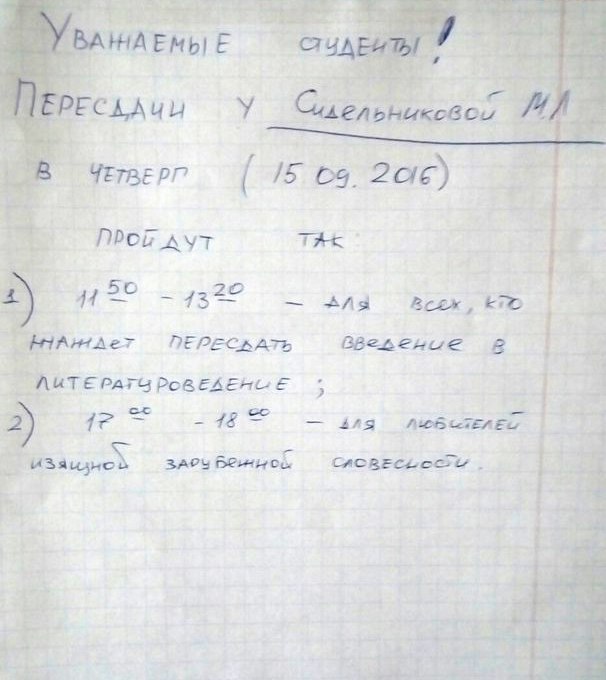 Уважаемые студенты!
Пересдачи у Сидельниковой М.Л
в четверг (15 09. 2016)
пройдут так:
1) 11 50 - 13 20 - для всех, кто
жаждет пересдать введение в
литературоведение ;
2) 17 00 - 18 00 - для любителей
изящной зарубежной словесности.